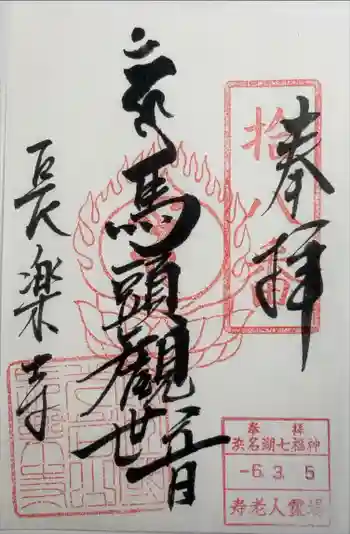 奉拝
拾八番
馬頭観世音
長楽寺
奉拝
浜名湖七福神
-6.3.5
寿老人霊場